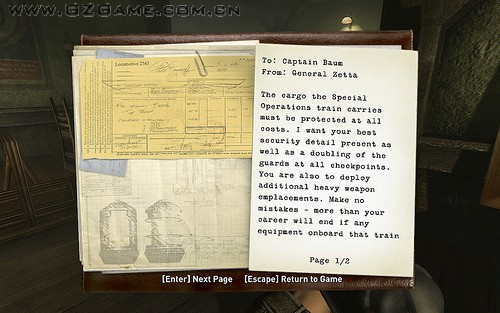 www.GZGAME.com.cn
Locomotive 2565
To: Captain Baum
From: General Zetta
The cargo the Special
Operations train carries
must be protected at all
costs. I want your best
security detail present as
well as a doubling of the
guards at all checkpoints.
You are also to deploy
additional heavy weapon
emplacements. Make no
mistakes - more than your
career will end if any
equipment onboard that train
Page 1/2
[Enter] Next Page [Escape] Return to Game